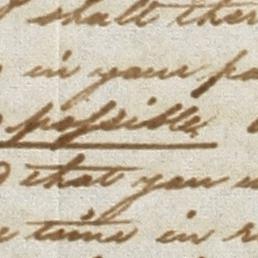 shall
in your
possible
that you
time in